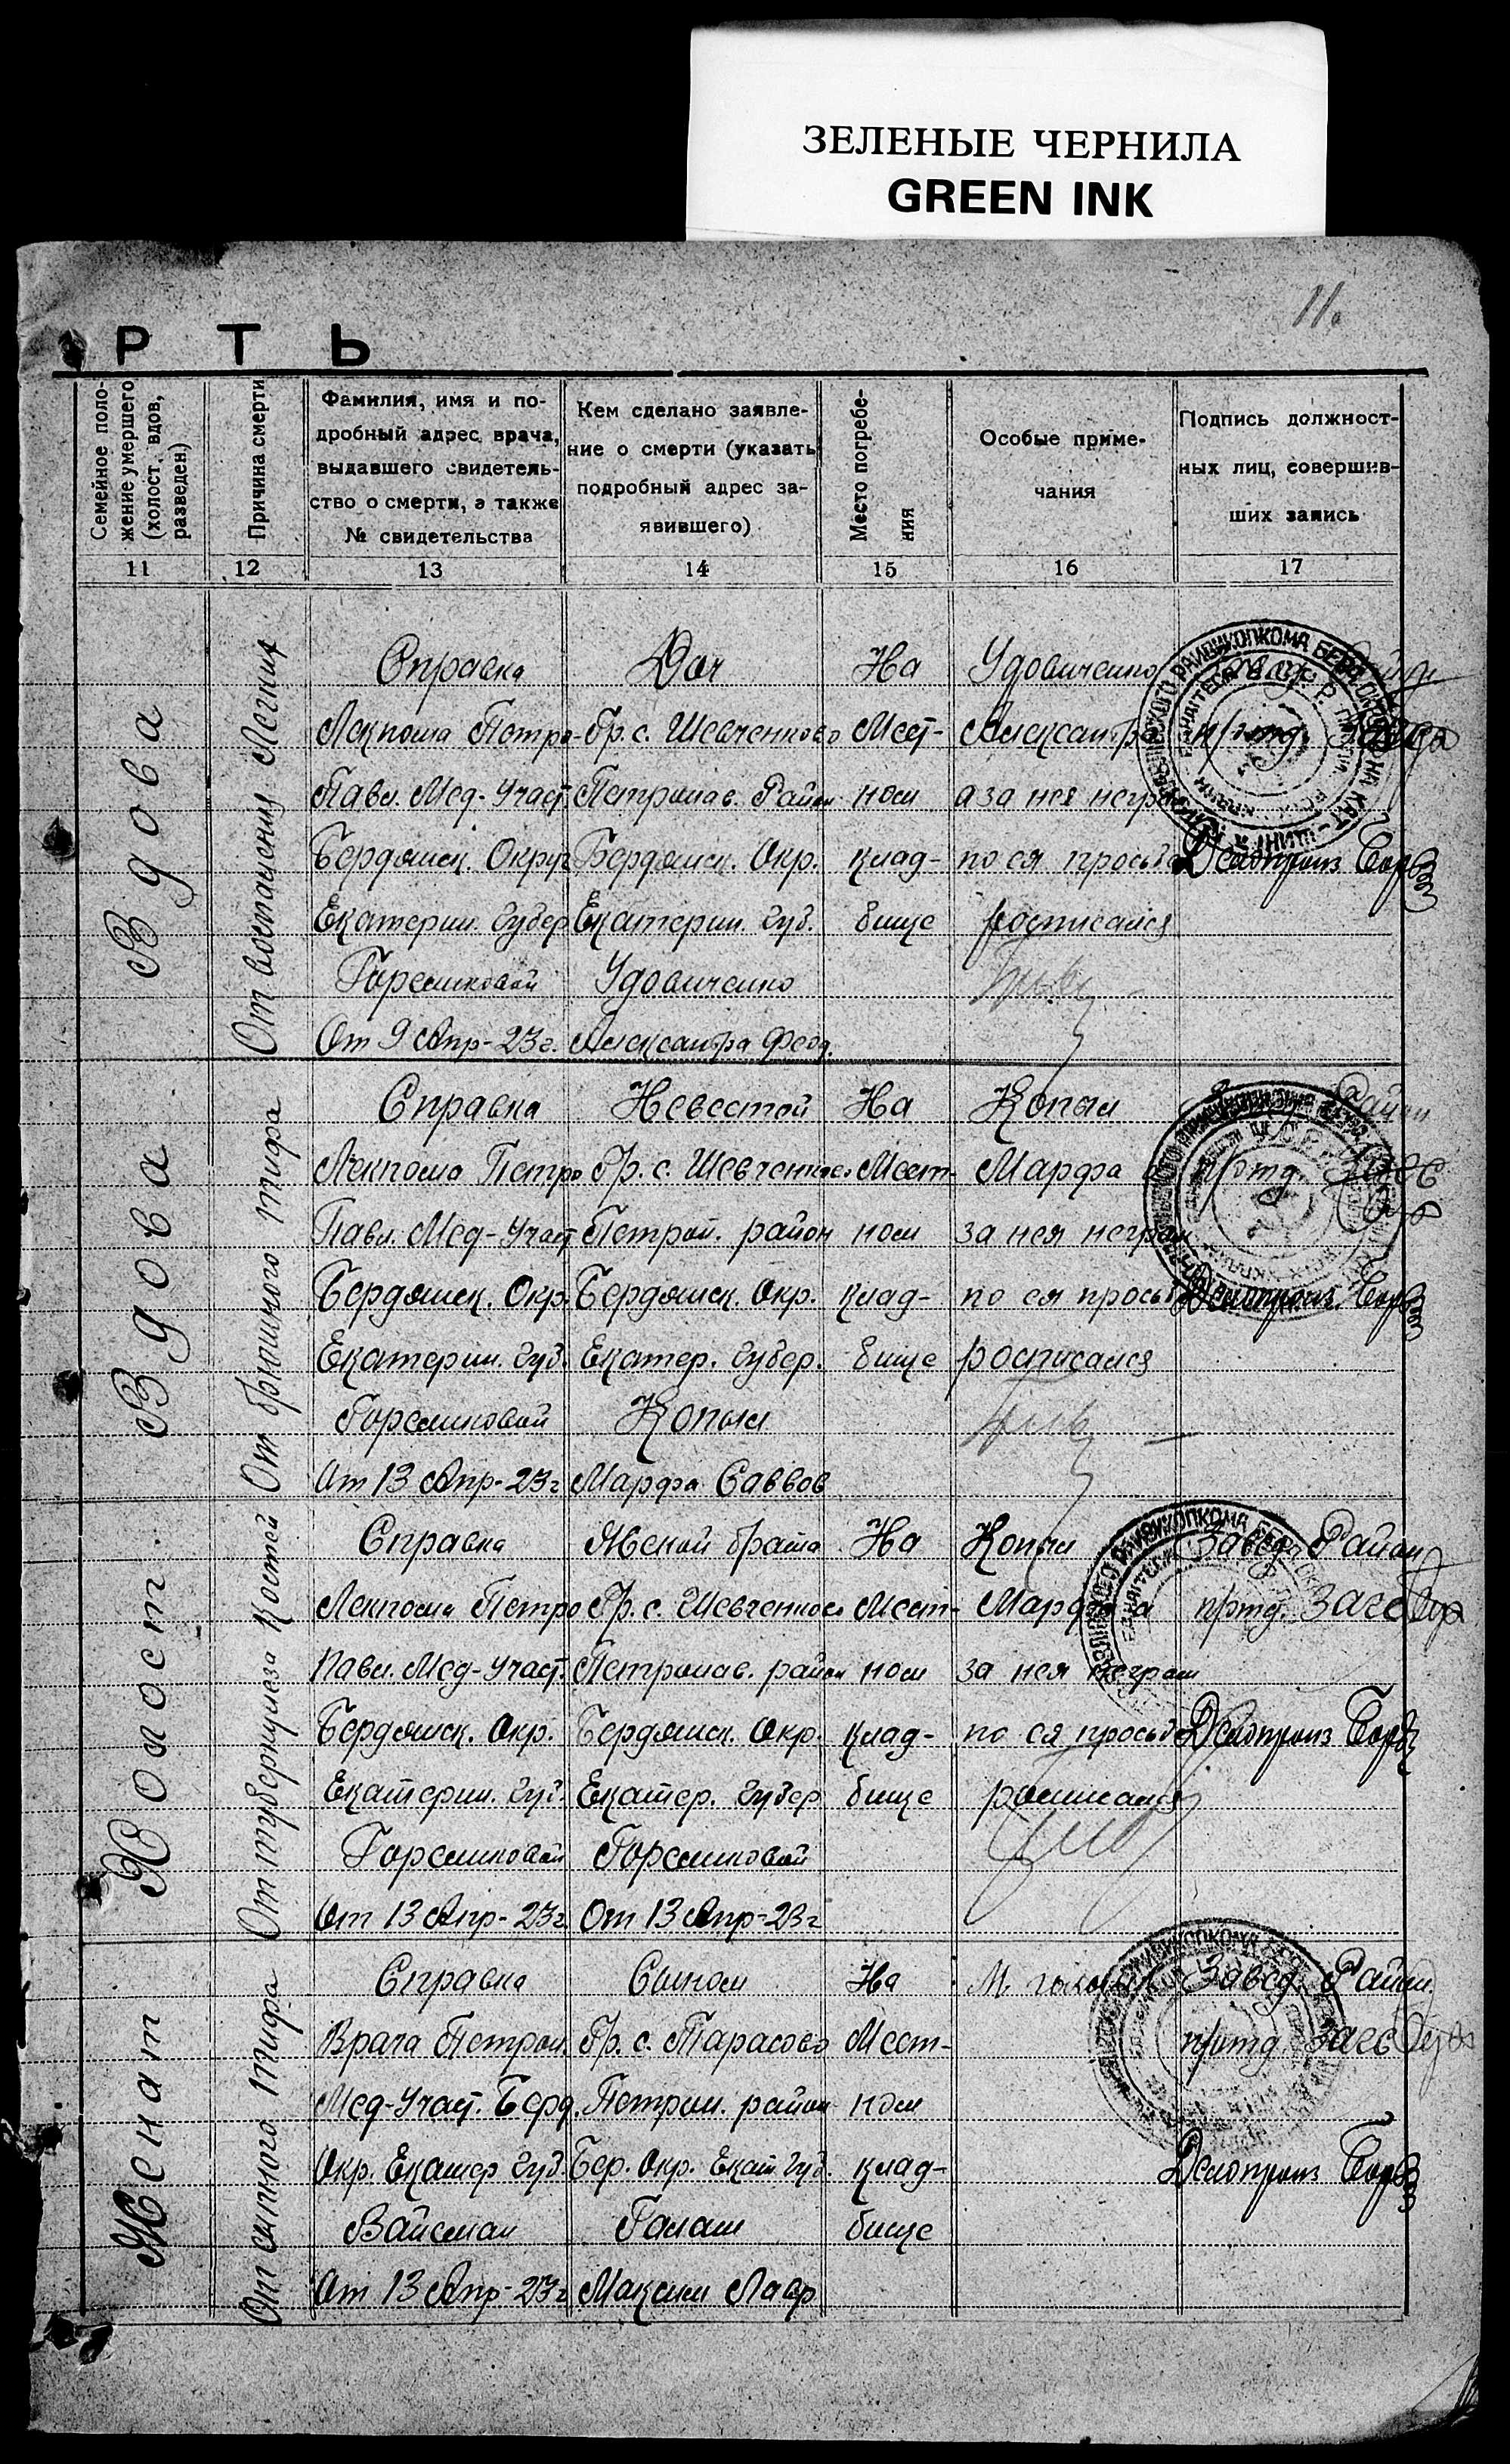 ЗЕЛЕНЫЕ ЧЕРНИЛА
GREEN INK
11.
Р Т Ь
Семейное поло-
жение умершего
(холост, вдов,
разведен)
Причина смерти
Фамилия, имя и по-
дробный адрес врача,
выдавшего свидетель-
ство о смерти, а также
№ свидетельства
Кем сделано заявле-
ние о смерти (указать
подробный адрес за-
явившего)
Место погребе-
ния
Особые приме-
чания
Подпись должност-
ных лиц, совершив-
ших запись
11
12
13
14
15
16
17
Вдова
От воспаления Легких
Справка
Лекпома Петро-
Павл. Мед-Участ.
Бердянск. Округ
Екатерин. Губер
Горелиновой
От 9 Апр-23г.
Доч
Гр. с. Шевченково
Петропав. Район
Бердянск. Окр.
Екатерин. Губ.
Удовиченко
Александра Федд.
На
Мест-
ном
клад-
бище
Удовиченко
Александр
а за нея неграм
по ея просьбе
росписался
Делопроиз
Вдова
От брюшного тифа
Справка
Лекпома Петро
Павл. Мед-Участ
Бердянск. Окр.
Екатерин. Губ.
Горелиновой
От 13 Апр-23г
Невестой
Гр. с. Шевченково
Петроп. район
Бердянск. Окр.
Екатер. Губер.
Копыл
Марфа Саввов
На
Мест-
ном
клад-
бище
Копыл
Марфа а
за нея неграм
по ея просьбе
росписался
Делопроиз
Холост.
От туберкулеза Костей
Справка
Лекпома Петро
Павл. Мед-Участ.
Бердянск. Окр.
Екатерин. Губ.
Горелиновой
От 13 Апр-23г.
Женой брата
Гр. с. Шевченково
Петропав. район
Бердянск. Окр.
Екатер. Губер
Горелиновой
От 13 Апр-23г
На
Мест-
ном
клад-
бище
Копыл
Марфа а
за нея неграм
по ея просьбе
росписался
Завед. Район
п/отд. Загс
Делопроиз
Женат
От сыпного тифа
Справка
Врача Петроп.
Мед-Участ. Берд.
Окр. Екатер Губ.
Вайсман
От 13 Апр-23г
Сыном
Гр. с. Тарасово
Петроп. район
Бер. Окр. Екат Губ.
Галаш
Максим Лавр
На
Мест-
ном
клад-
бище
Завед. Район.
п/отд Загс
Делопроиз